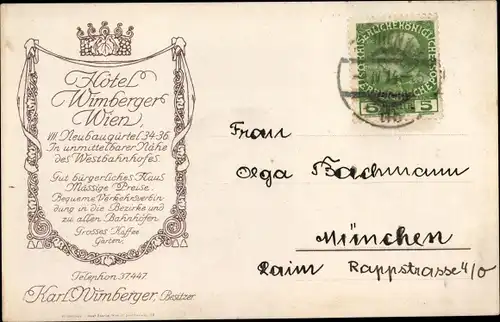 Hotel
Wimberger
Wien,
Neubaugürtel 34-36.
In unmittelbarer Nähe
des Westbahnhofes.
Gut bürgerliches Haus
Mässige Preise.
Bequeme Verkehrsverbin
dung in die Bezirke und
zu allen Bahnhöfen.
Grosses Kaffee
Garten.
Telephon 37447.
Karl Wimberger, Besitzer
5 5
Frau
Olga Bachmann
München
Rappstrasse 4/0